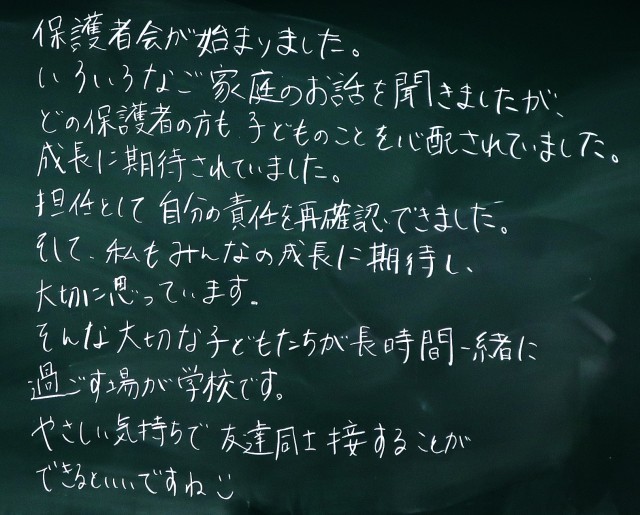 保護者会が始まりました。
いろいろなご家庭のお話を聞きましたが、
どの保護者の方も、子どものことを心配されていました。
成長に期待されていました。
担任として自分の責任を再確認できました。
そして、私もみんなの成長に期待し、
大切に思っています。
そんな大切な子どもたちが長時間一緒に
過ごす場が学校です。
やさしい気持ちで友達同士接することが
できるといいですね